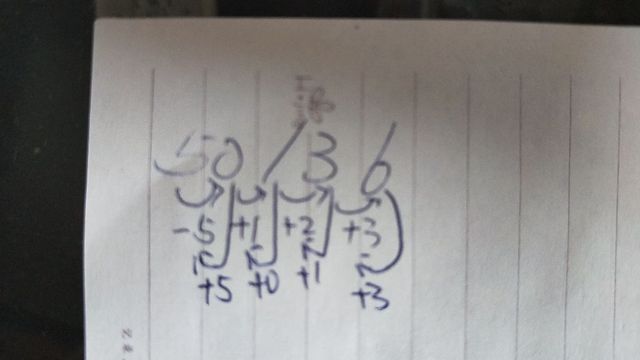 50136
-5 +1 +2 +3
+5 +0 +1 +3